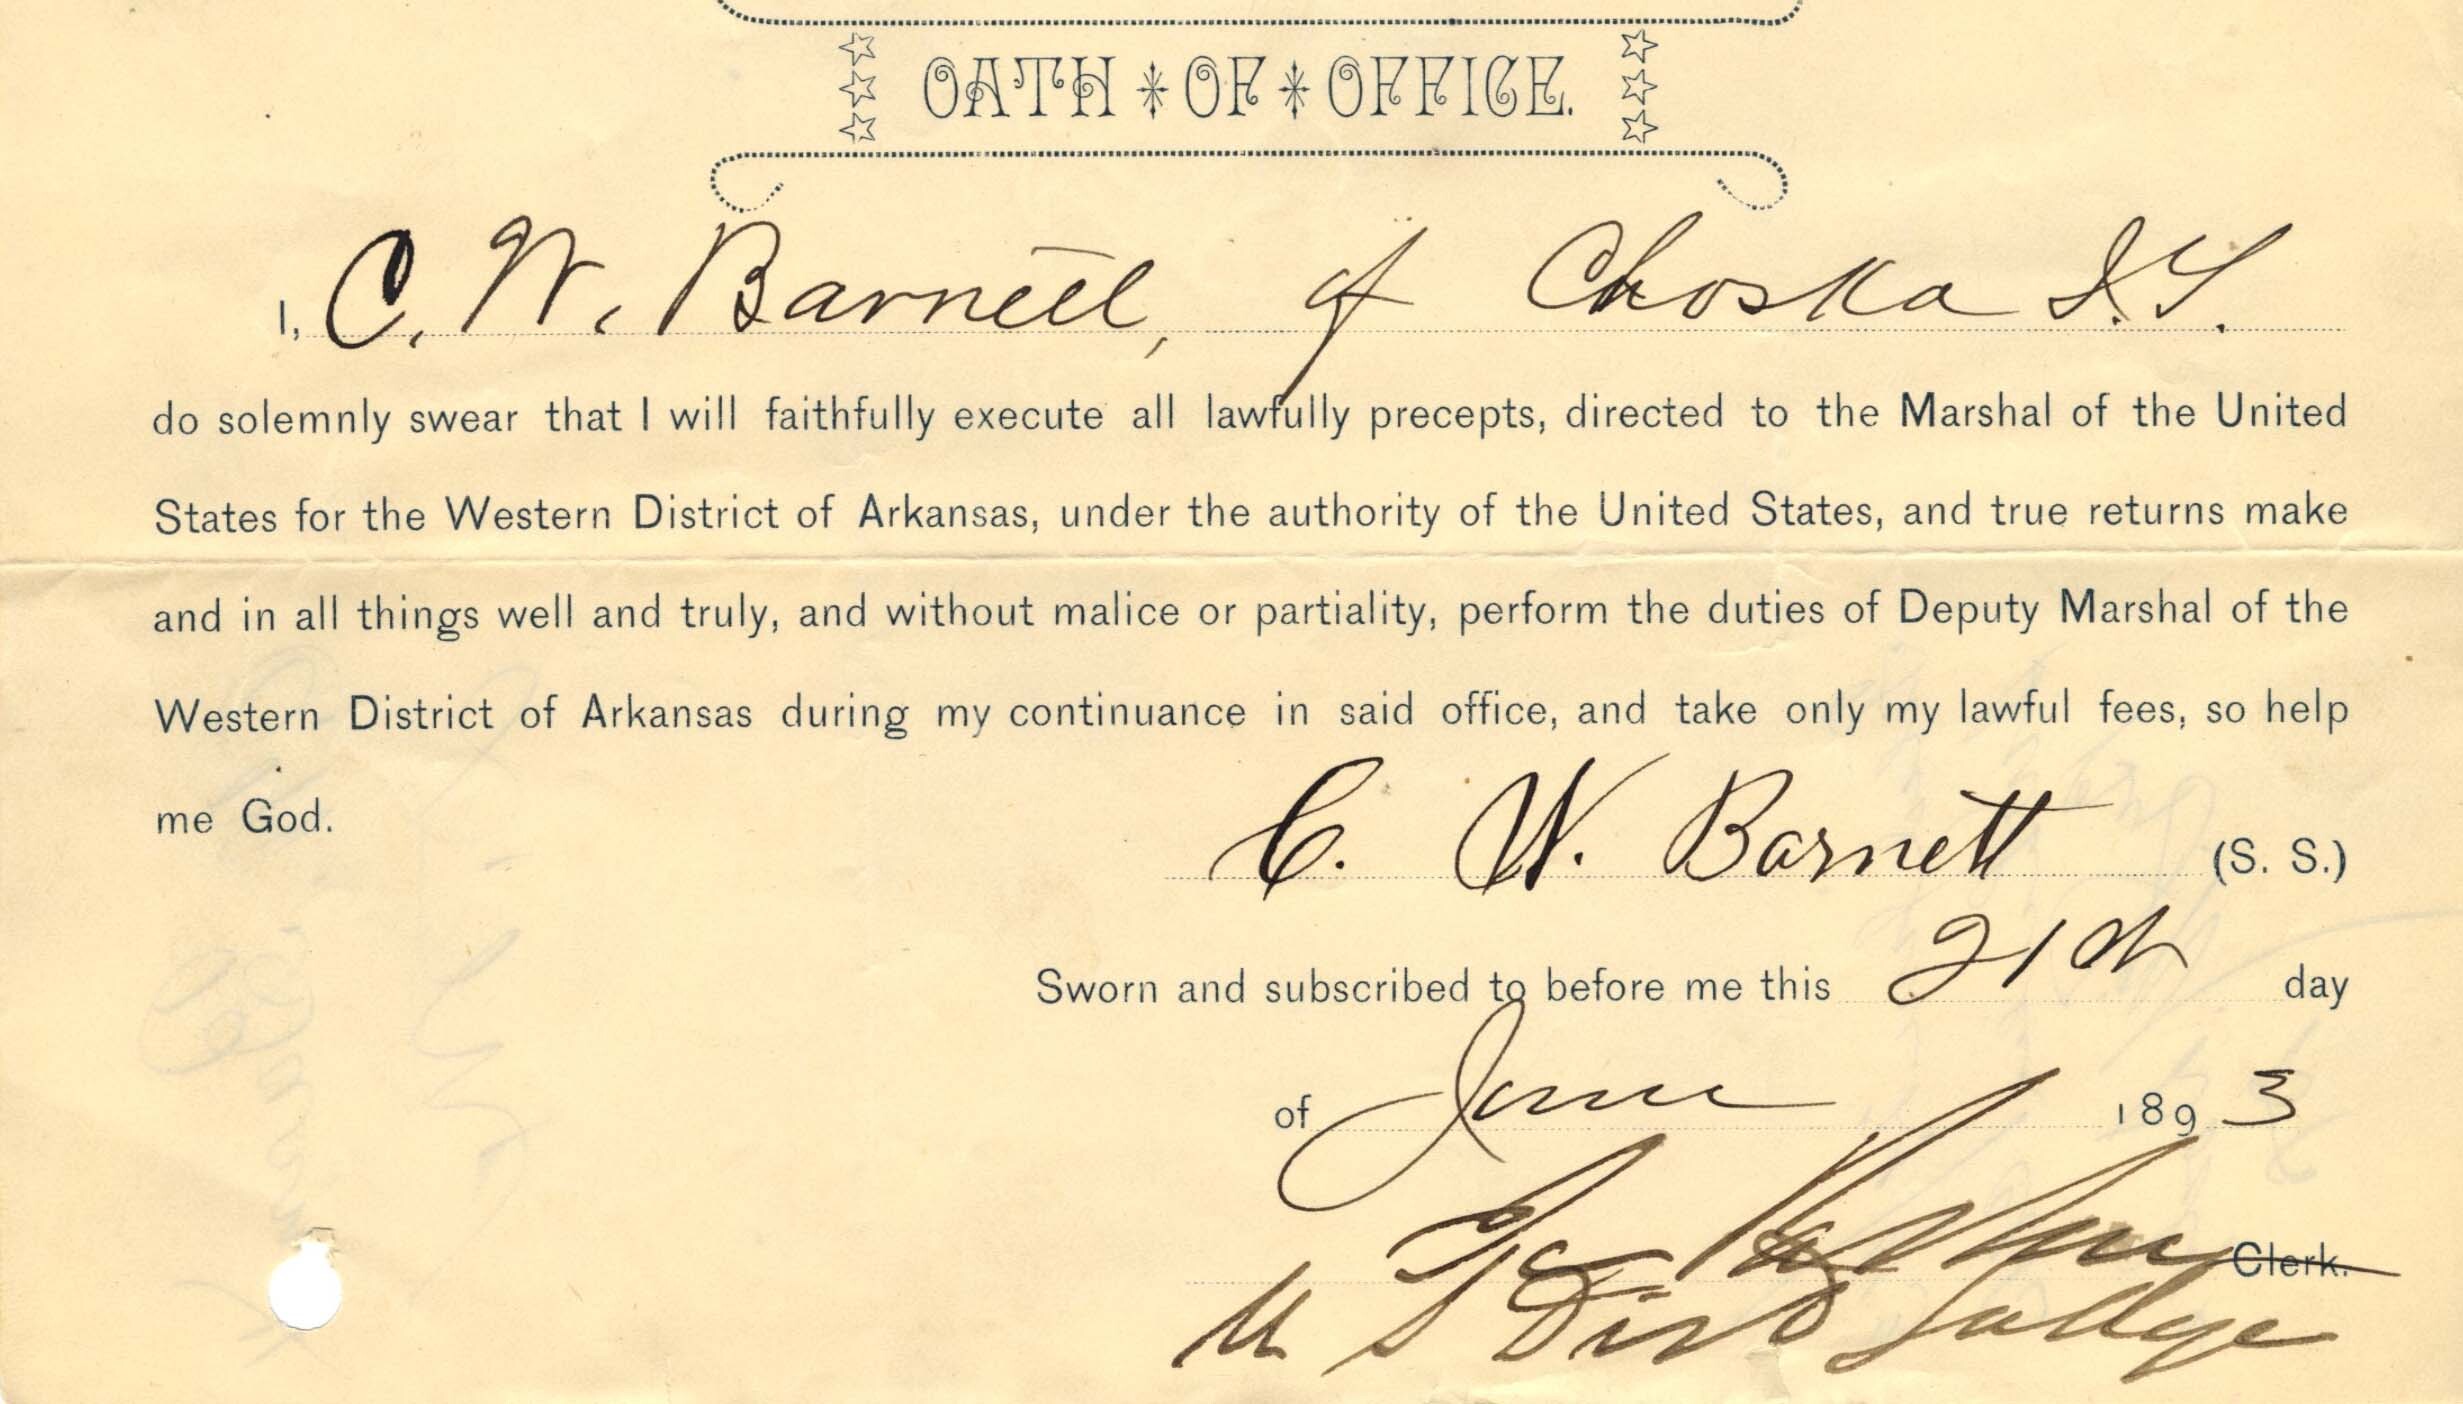 OATH * OF * OFFICE.
I, C. W. Barnett, of Choska I.T.
do solemnly swear that I will faithfully execute all lawfully precepts, directed to the Marshal of the United
States for the Western District of Arkansas, under the authority of the United States, and true returns make
and in all things well and truly, and without malice or partiality, perform the duties of Deputy Marshal of the
Western District of Arkansas during my continuance in said office, and take only my lawful fees, so help
me God.
C. W. Barnett (S. S.)
Sworn and subscribed to before me this 21st day
of June 1893
Clerk.
U S Dist Judge